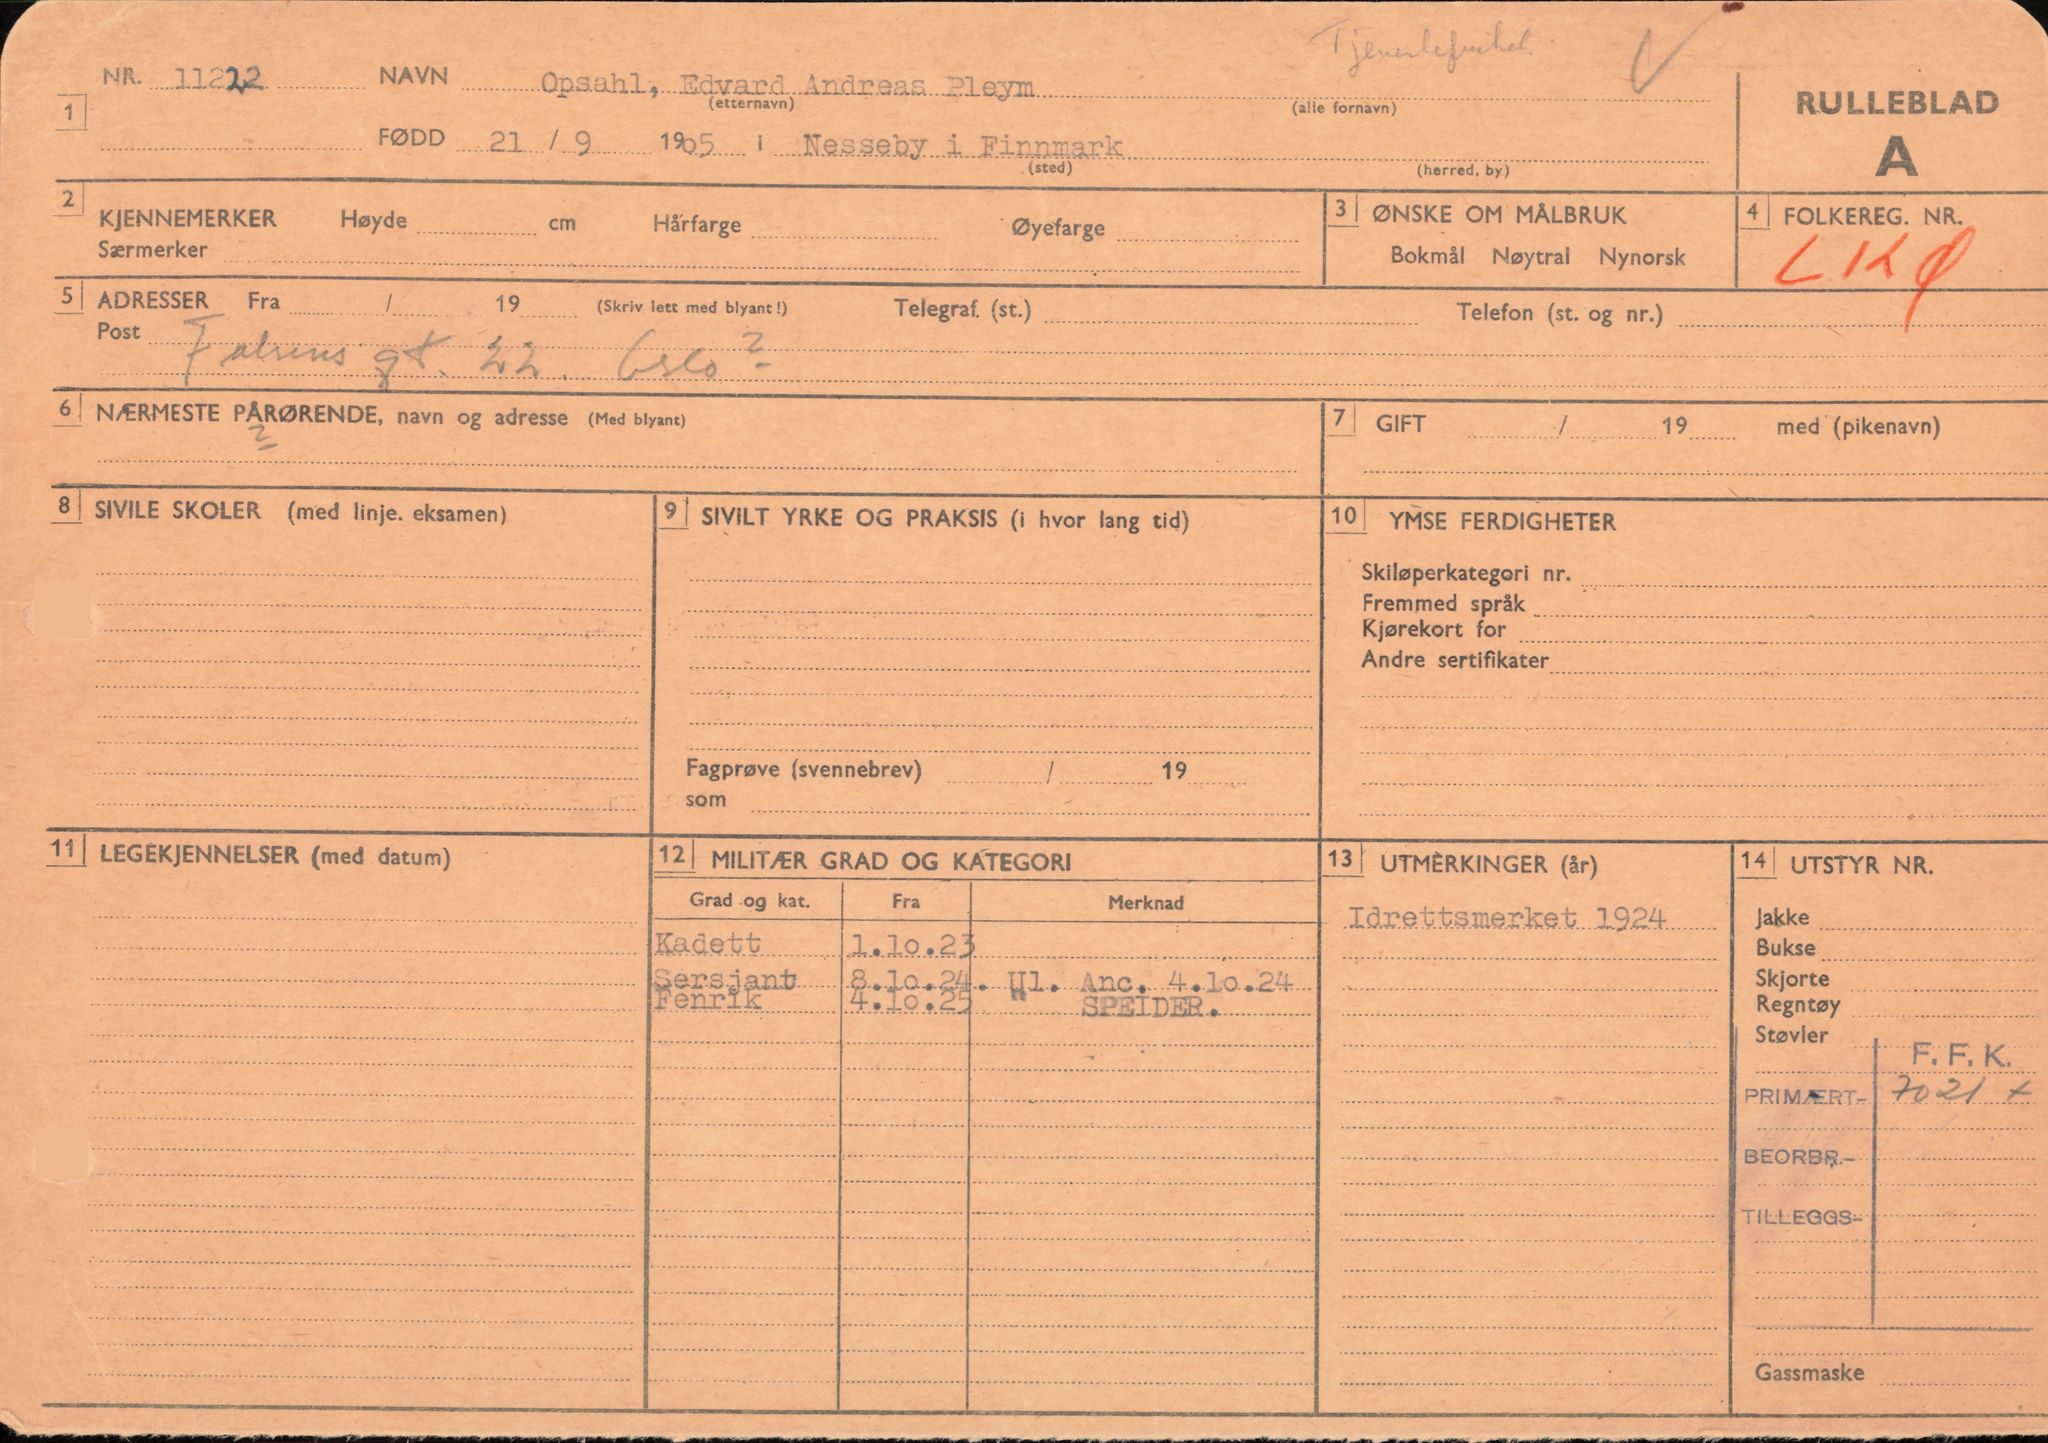 Tjenestefrihet
NR. 11222 NAVN Opsahl, Edvard Andreas Pleym
(etternavn) (alle fornavn)
1
RULLEBLAD
A
FØDD 21 / 9 1905 i Nesseby i Finnmark
(sted) (herred, by)
2 KJENNEMERKER Høyde cm Hårfarge Øyefarge
Særmerker
3 ØNSKE OM MÅLBRUK
Bokmål Nøytral Nynorsk
4 FOLKEREG. NR.
LKØ
5 ADRESSER Fra / 19 (Skriv lett med blyant!) Telegraf. (st.) Telefon (st. og nr.)
Post
Falsens gt. 22. Oslo?
6 NÆRMESTE PÅRØRENDE, navn og adresse (Med blyant)
?
7 GIFT / 19 med (pikenavn)
8 SIVILE SKOLER (med linje. eksamen)
9 SIVILT YRKE OG PRAKSIS (i hvor lang tid)
Fagprøve (svennebrev) / 19
som
10 YMSE FERDIGHETER
Skiløperkategori nr.
Fremmed språk
Kjørekort for
Andre sertifikater
11 LEGEKJENNELSER (med datum)
12 MILITÆR GRAD OG KATEGORI
Grad og kat. Fra Merknad
Kadett 1.10.23
Sersjant 8.10.24. Ul. Anc. 4.10.24
Fenrik 4.10.25 " SPEIDER.
13 UTMERKINGER (år)
Idrettsmerket 1924
14 UTSTYR NR.
Jakke
Bukse
Skjorte
Regntøy
Støvler
F. F. K.
PRIMÆRT- 7021 +
BEORBR.-
TILLEGGS-
Gassmaske